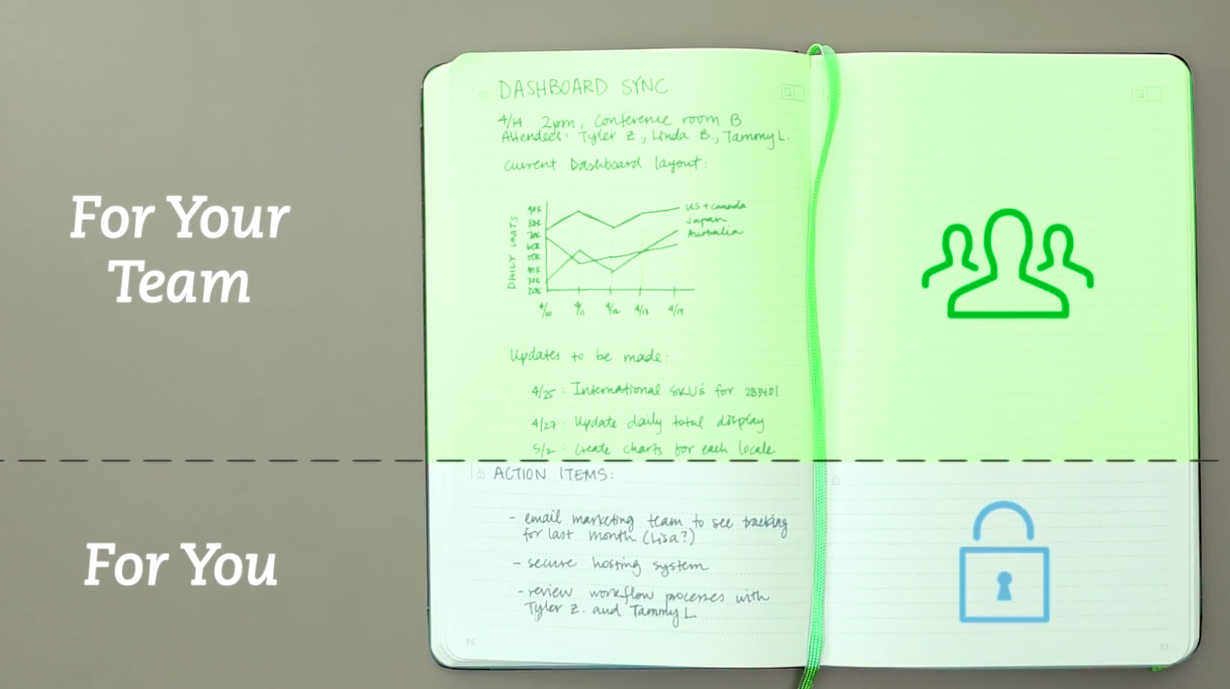 For Your
Team
For You
DASHBOARD SYNC
4/14 2pm, Conference room B
Attendees: Tyler Z., Linda B., Tammy L.
Current Dashboard layout:
DAILY UNITS
90K
80K
70K
60K
50K
40K
30K
20K
US + Canada
Japan
Australia
4/10
4/11
4/12
4/13
4/14
Updates to be made:
4/25: International SKU's for 2B3401
4/27: Update daily total display
5/2: Create charts for each locale
ACTION ITEMS:
- email marketing team to see tracking
for last month (Lisa?)
- secure hosting system
- review workflow processes with
Tyler Z. and Tammy L.